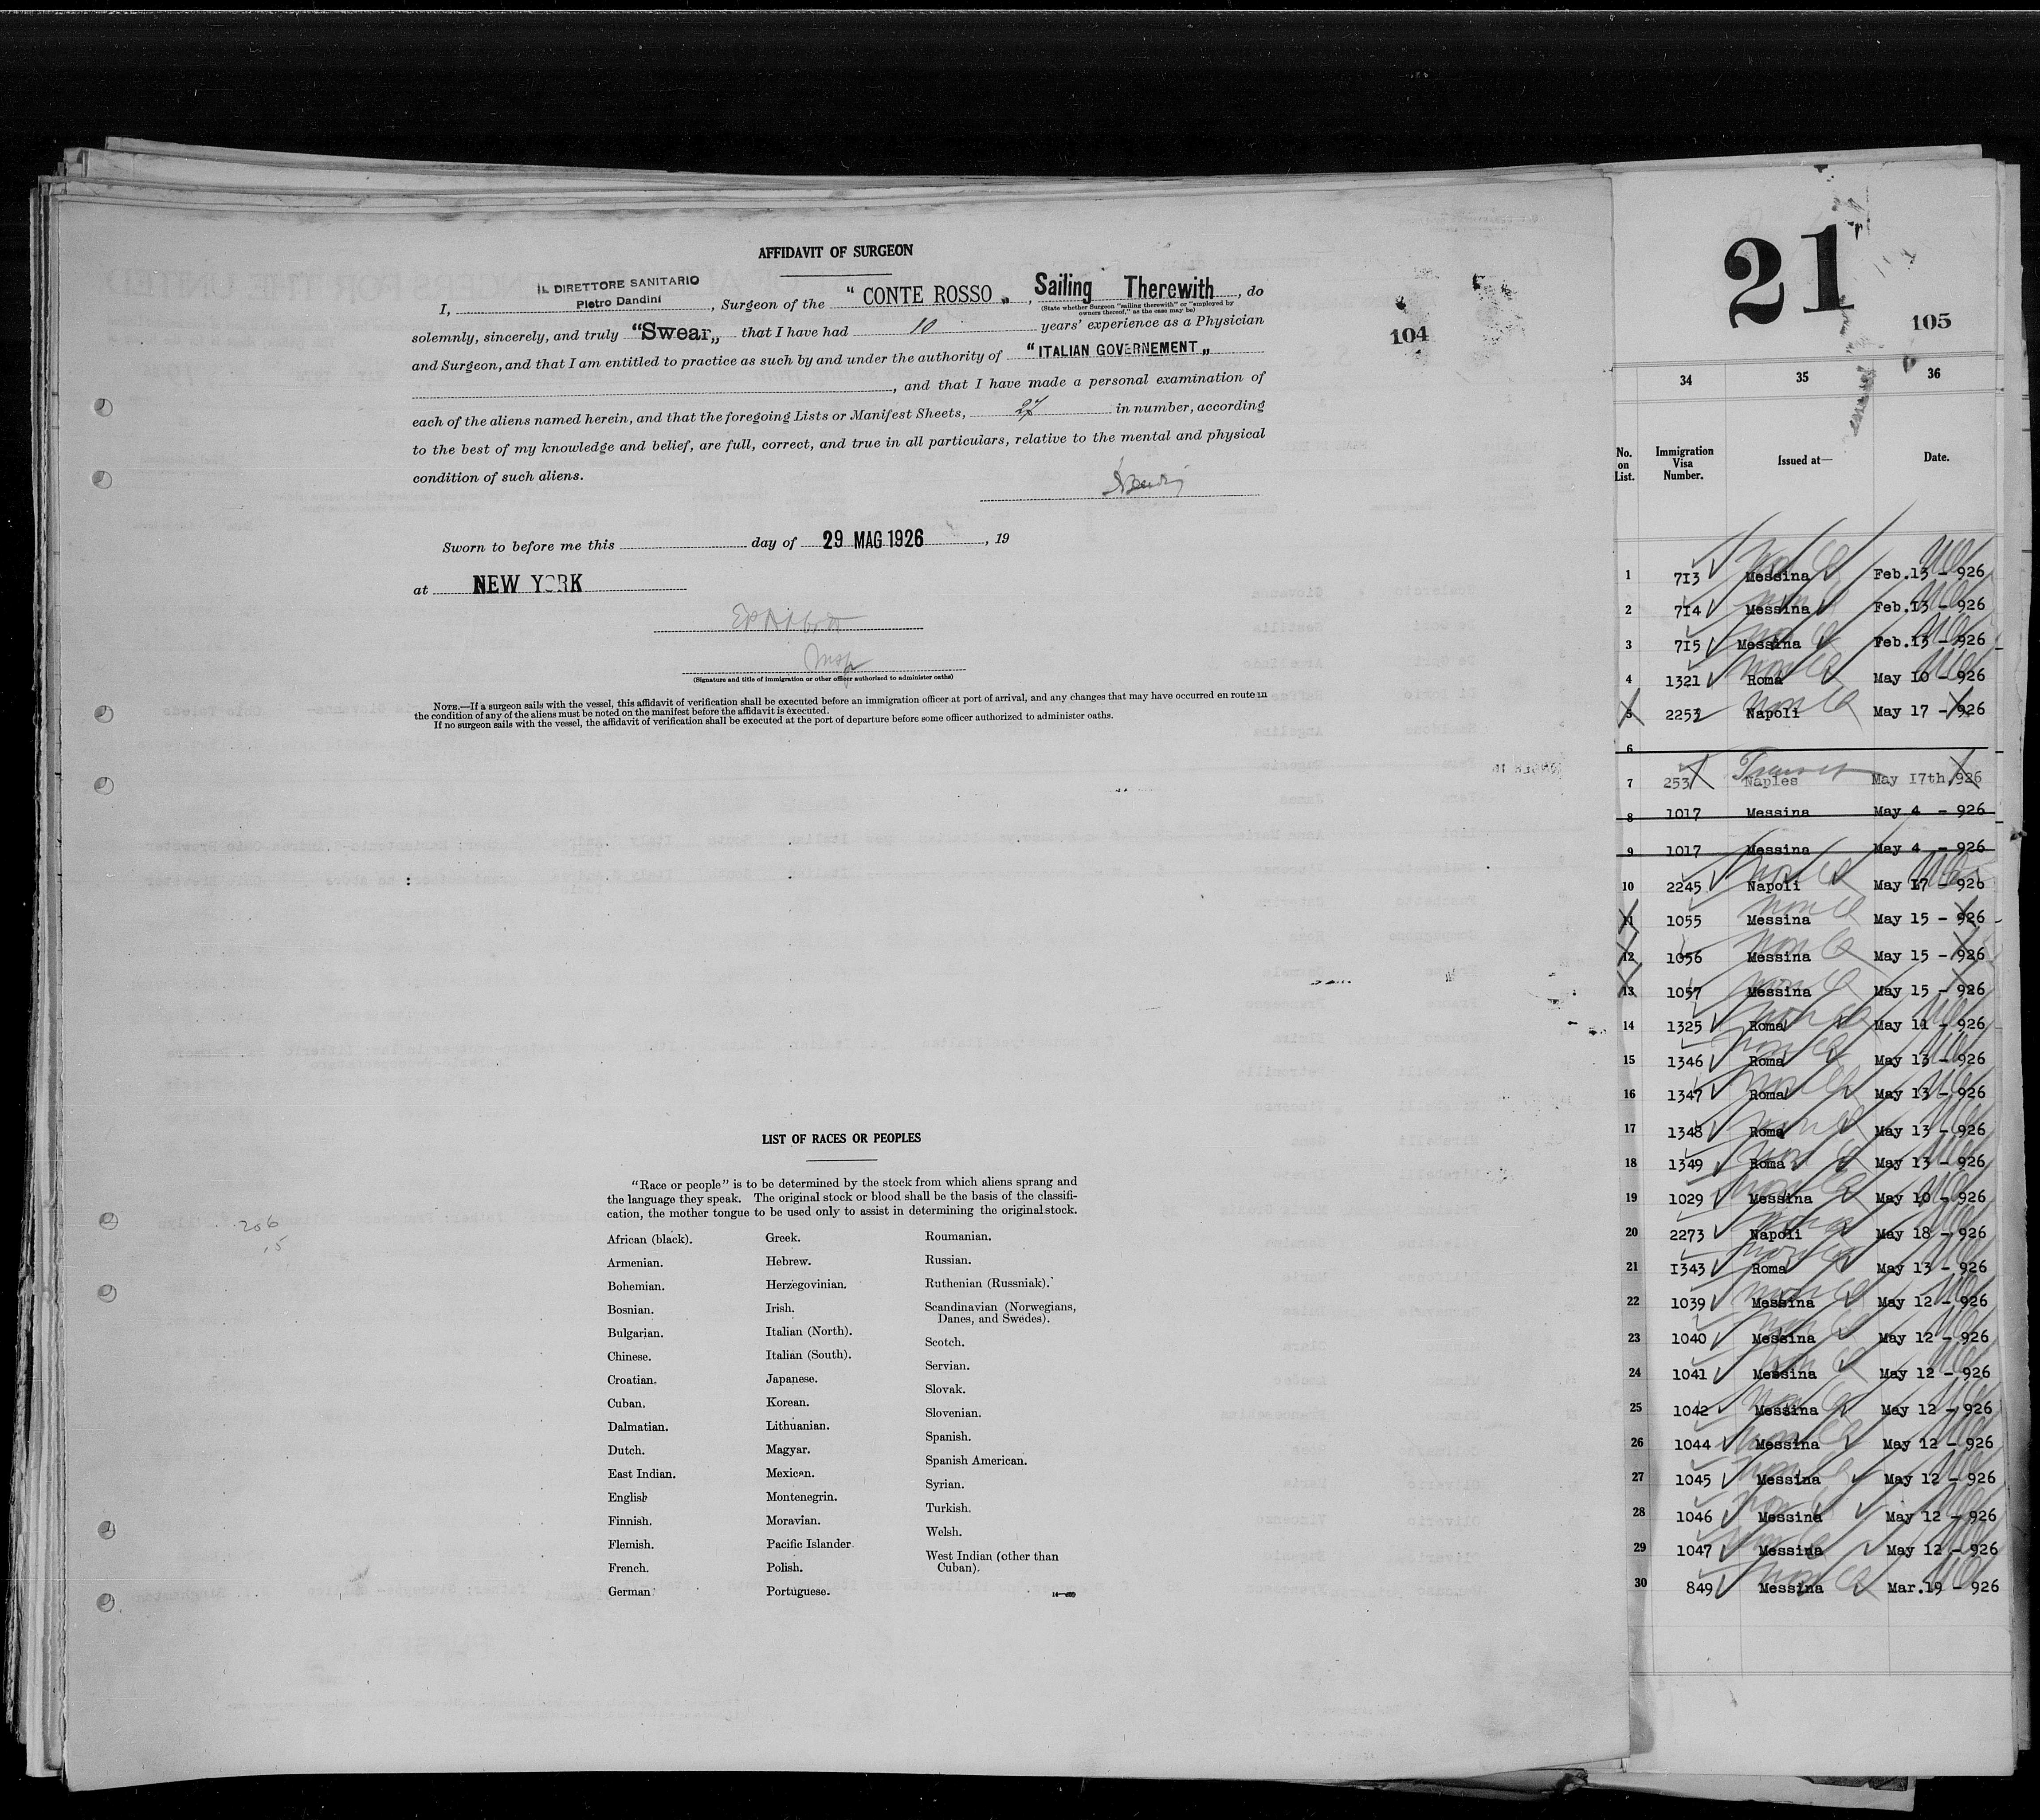 AFFIDAVIT OF SURGEON
IL DIRETTORE SANITARIO
Pietro Dandini
I, , Surgeon of the "CONTE ROSSO„ , Sailing Therewith , do
(State whether Surgeon "sailing therewith" or "employed by
owners thereof," as the case may be)
solemnly, sincerely, and truly "Swear„ that I have had 10 years' experience as a Physician
and Surgeon, and that I am entitled to practice as such by and under the authority of "ITALIAN GOVERNEMENT„
, and that I have made a personal examination of
each of the aliens named herein, and that the foregoing Lists or Manifest Sheets, 27 in number, according
to the best of my knowledge and belief, are full, correct, and true in all particulars, relative to the mental and physical
condition of such aliens.
Sworn to before me this day of 29 MAG 1926 , 19
at NEW YORK
Insp
(Signature and title of immigration or other officer authorized to administer oaths)
NOTE.—If a surgeon sails with the vessel, this affidavit of verification shall be executed before an immigration officer at port of arrival, and any changes that may have occurred en route in
the condition of any of the aliens must be noted on the manifest before the affidavit is executed.
If no surgeon sails with the vessel, the affidavit of verification shall be executed at the port of departure before some officer authorized to administer oaths.
104
206
15
LIST OF RACES OR PEOPLES
"Race or people" is to be determined by the stock from which aliens sprang and
the language they speak. The original stock or blood shall be the basis of the classifi-
cation, the mother tongue to be used only to assist in determining the original stock.
African (black).
Armenian.
Bohemian.
Bosnian.
Bulgarian.
Chinese.
Croatian.
Cuban.
Dalmatian.
Dutch.
East Indian.
English
Finnish.
Flemish.
French.
German
Greek.
Hebrew.
Herzegovinian.
Irish.
Italian (North).
Italian (South).
Japanese.
Korean.
Lithuanian.
Magyar.
Mexican.
Montenegrin.
Moravian.
Pacific Islander.
Polish.
Portuguese.
Roumanian.
Russian.
Ruthenian (Russniak).
Scandinavian (Norwegians,
Danes, and Swedes).
Scotch.
Servian.
Slovak.
Slovenian.
Spanish.
Spanish American.
Syrian.
Turkish.
Welsh.
West Indian (other than
Cuban).
21
105
34 35 36
No. on List. Immigration Visa Number. Issued at— Date.
1 713 Messina Feb.13 - 926
2 714 Messina Feb.13 - 926
3 715 Messina Feb.13 - 926
4 1321 Roma May 10 - 926
5 2253 Napoli May 17 - 926
6
Transit
7 253 Naples May 17th,926
8 1017 Messina May 4 - 926
9 1017 Messina May 4 - 926
10 2245 Napoli May 17 - 926
11 1055 Messina May 15 - 926
12 1056 Messina May 15 - 926
13 1057 Messina May 15 - 926
14 1325 Roma May 11 - 926
15 1346 Roma May 13 - 926
16 1347 Roma May 13 - 926
17 1348 Roma May 13 - 926
18 1349 Roma May 13 - 926
19 1029 Messina May 10 - 926
20 2273 Napoli May 18 - 926
21 1343 Roma May 13 - 926
22 1039 Messina May 12 - 926
23 1040 Messina May 12 - 926
24 1041 Messina May 12 - 926
25 1042 Messina May 12 - 926
26 1044 Messina May 12 - 926
27 1045 Messina May 12 - 926
28 1046 Messina May 12 - 926
29 1047 Messina May 12 - 926
30 849 Messina Mar.19 - 926